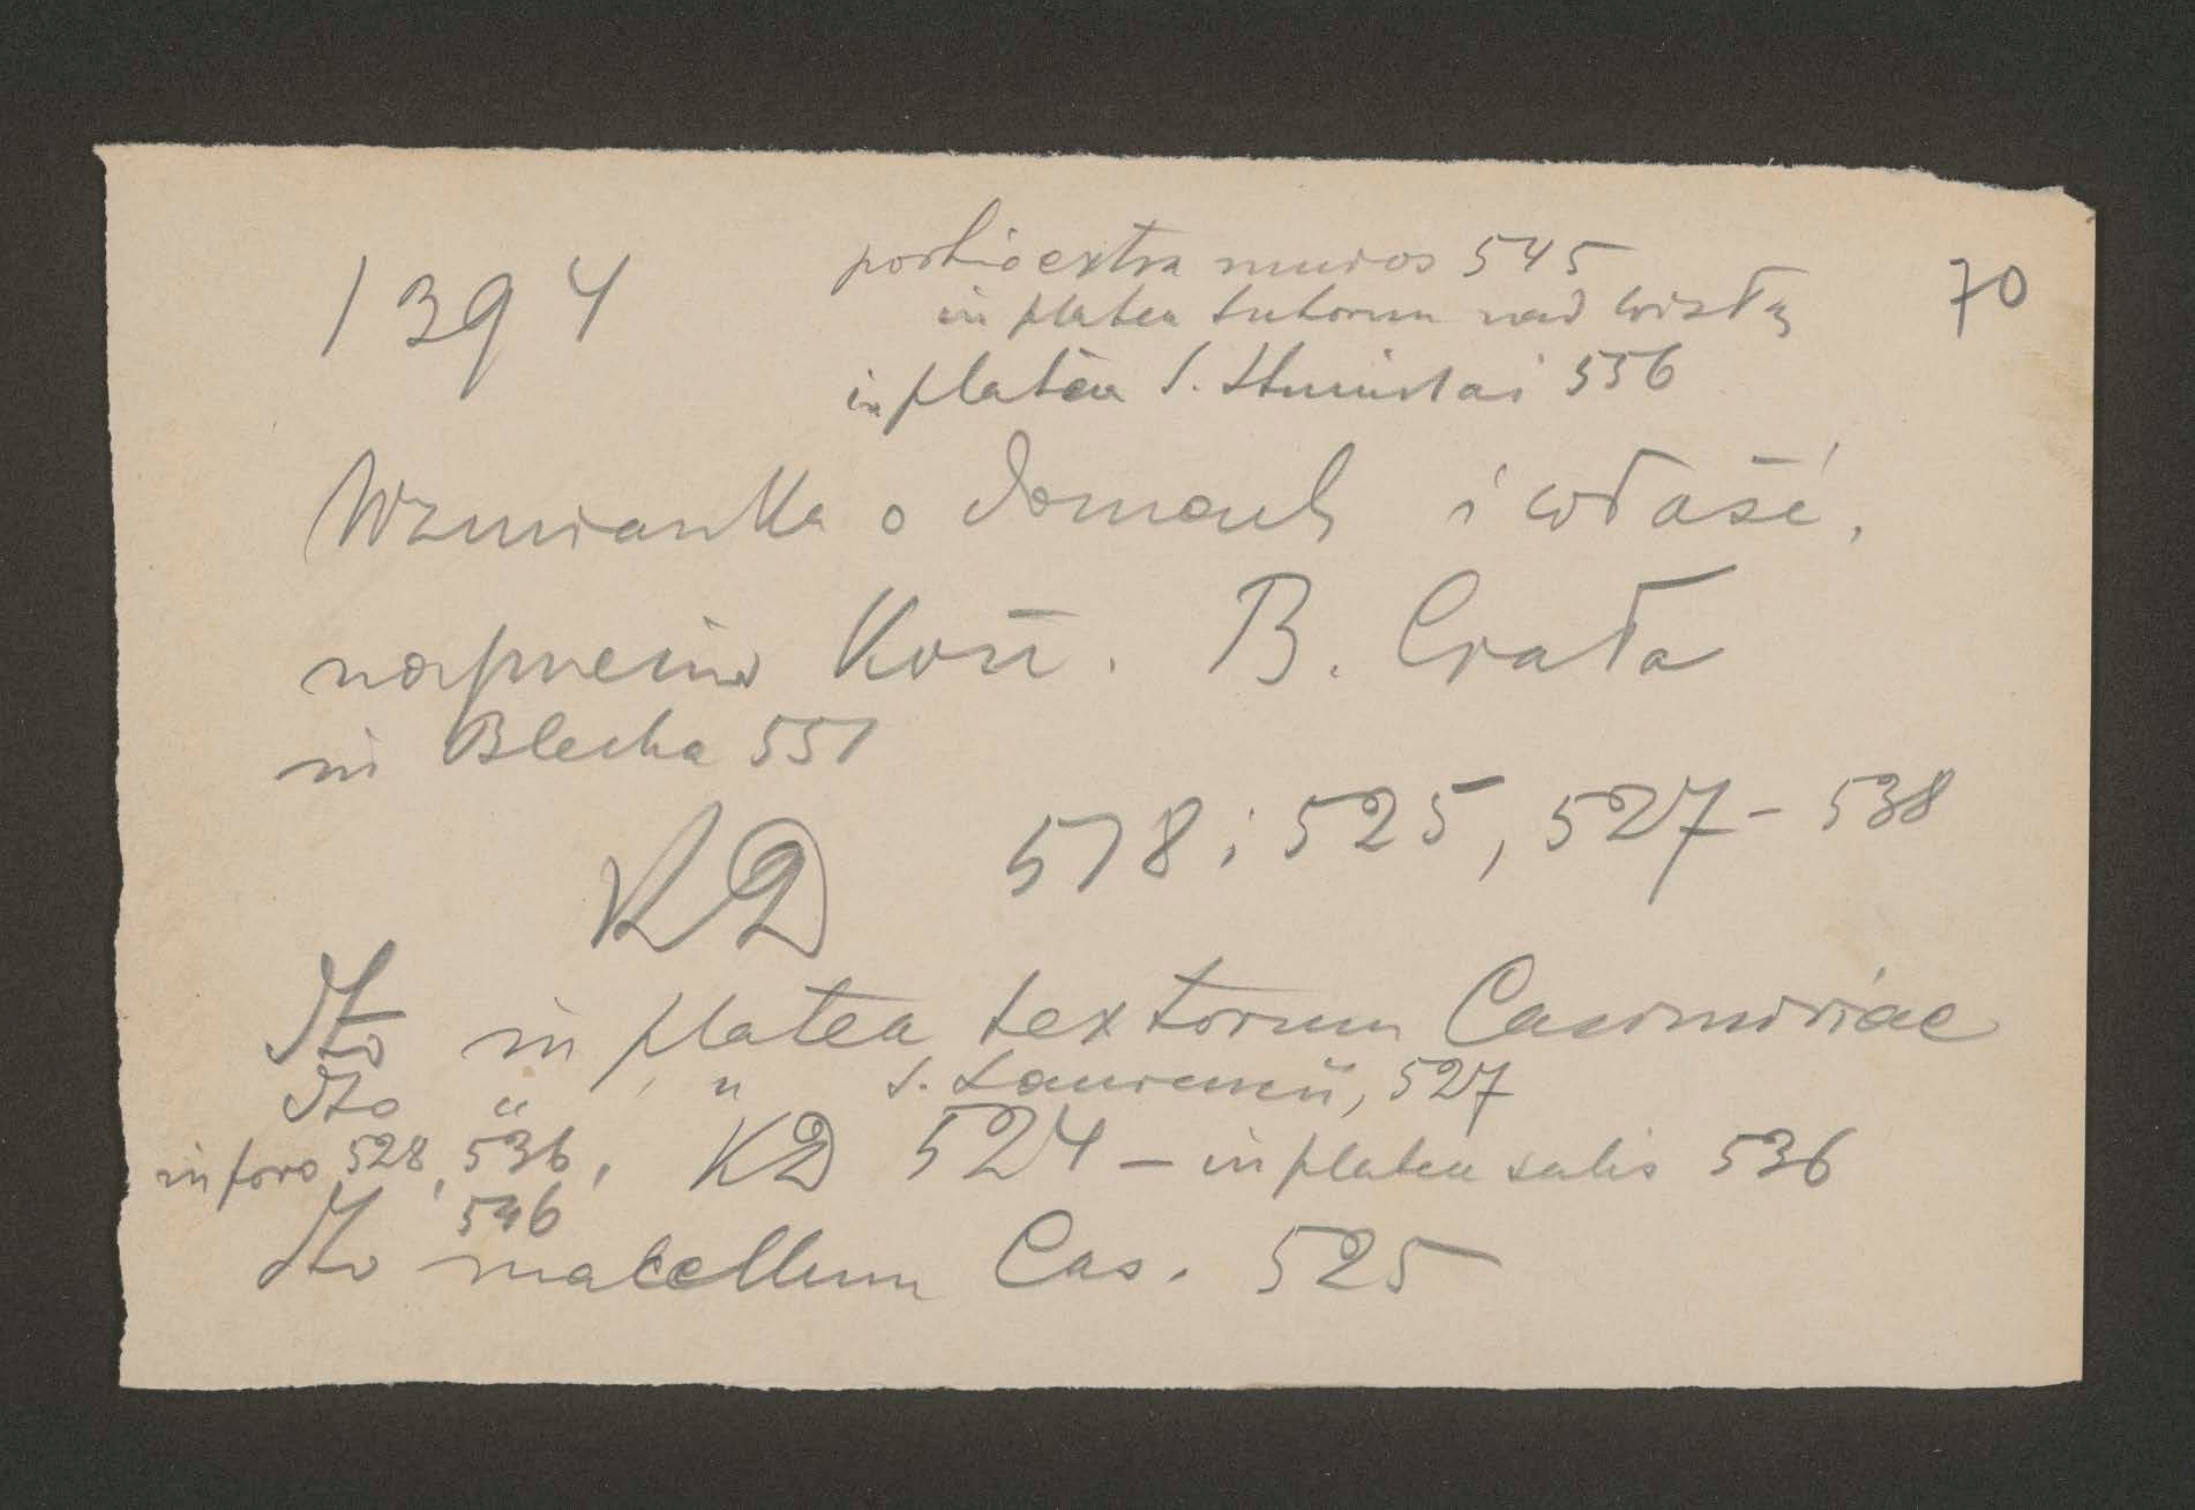 1394
portio extra muros 545
70
in platea sutorum nad Wisłą
in platea S. Stanislai 556
Wzmianka o domach i właśc.
naprzeciw Kośc. B. Ciała
in Blecha 551
KD 518; 525, 527 - 538
Ito in platea textorum Casimiriae
Ito " " S. Laurencii, 527
in foro 528, 536, KD 524 - in platea salis 536
546
Ito macellum Cas. 525